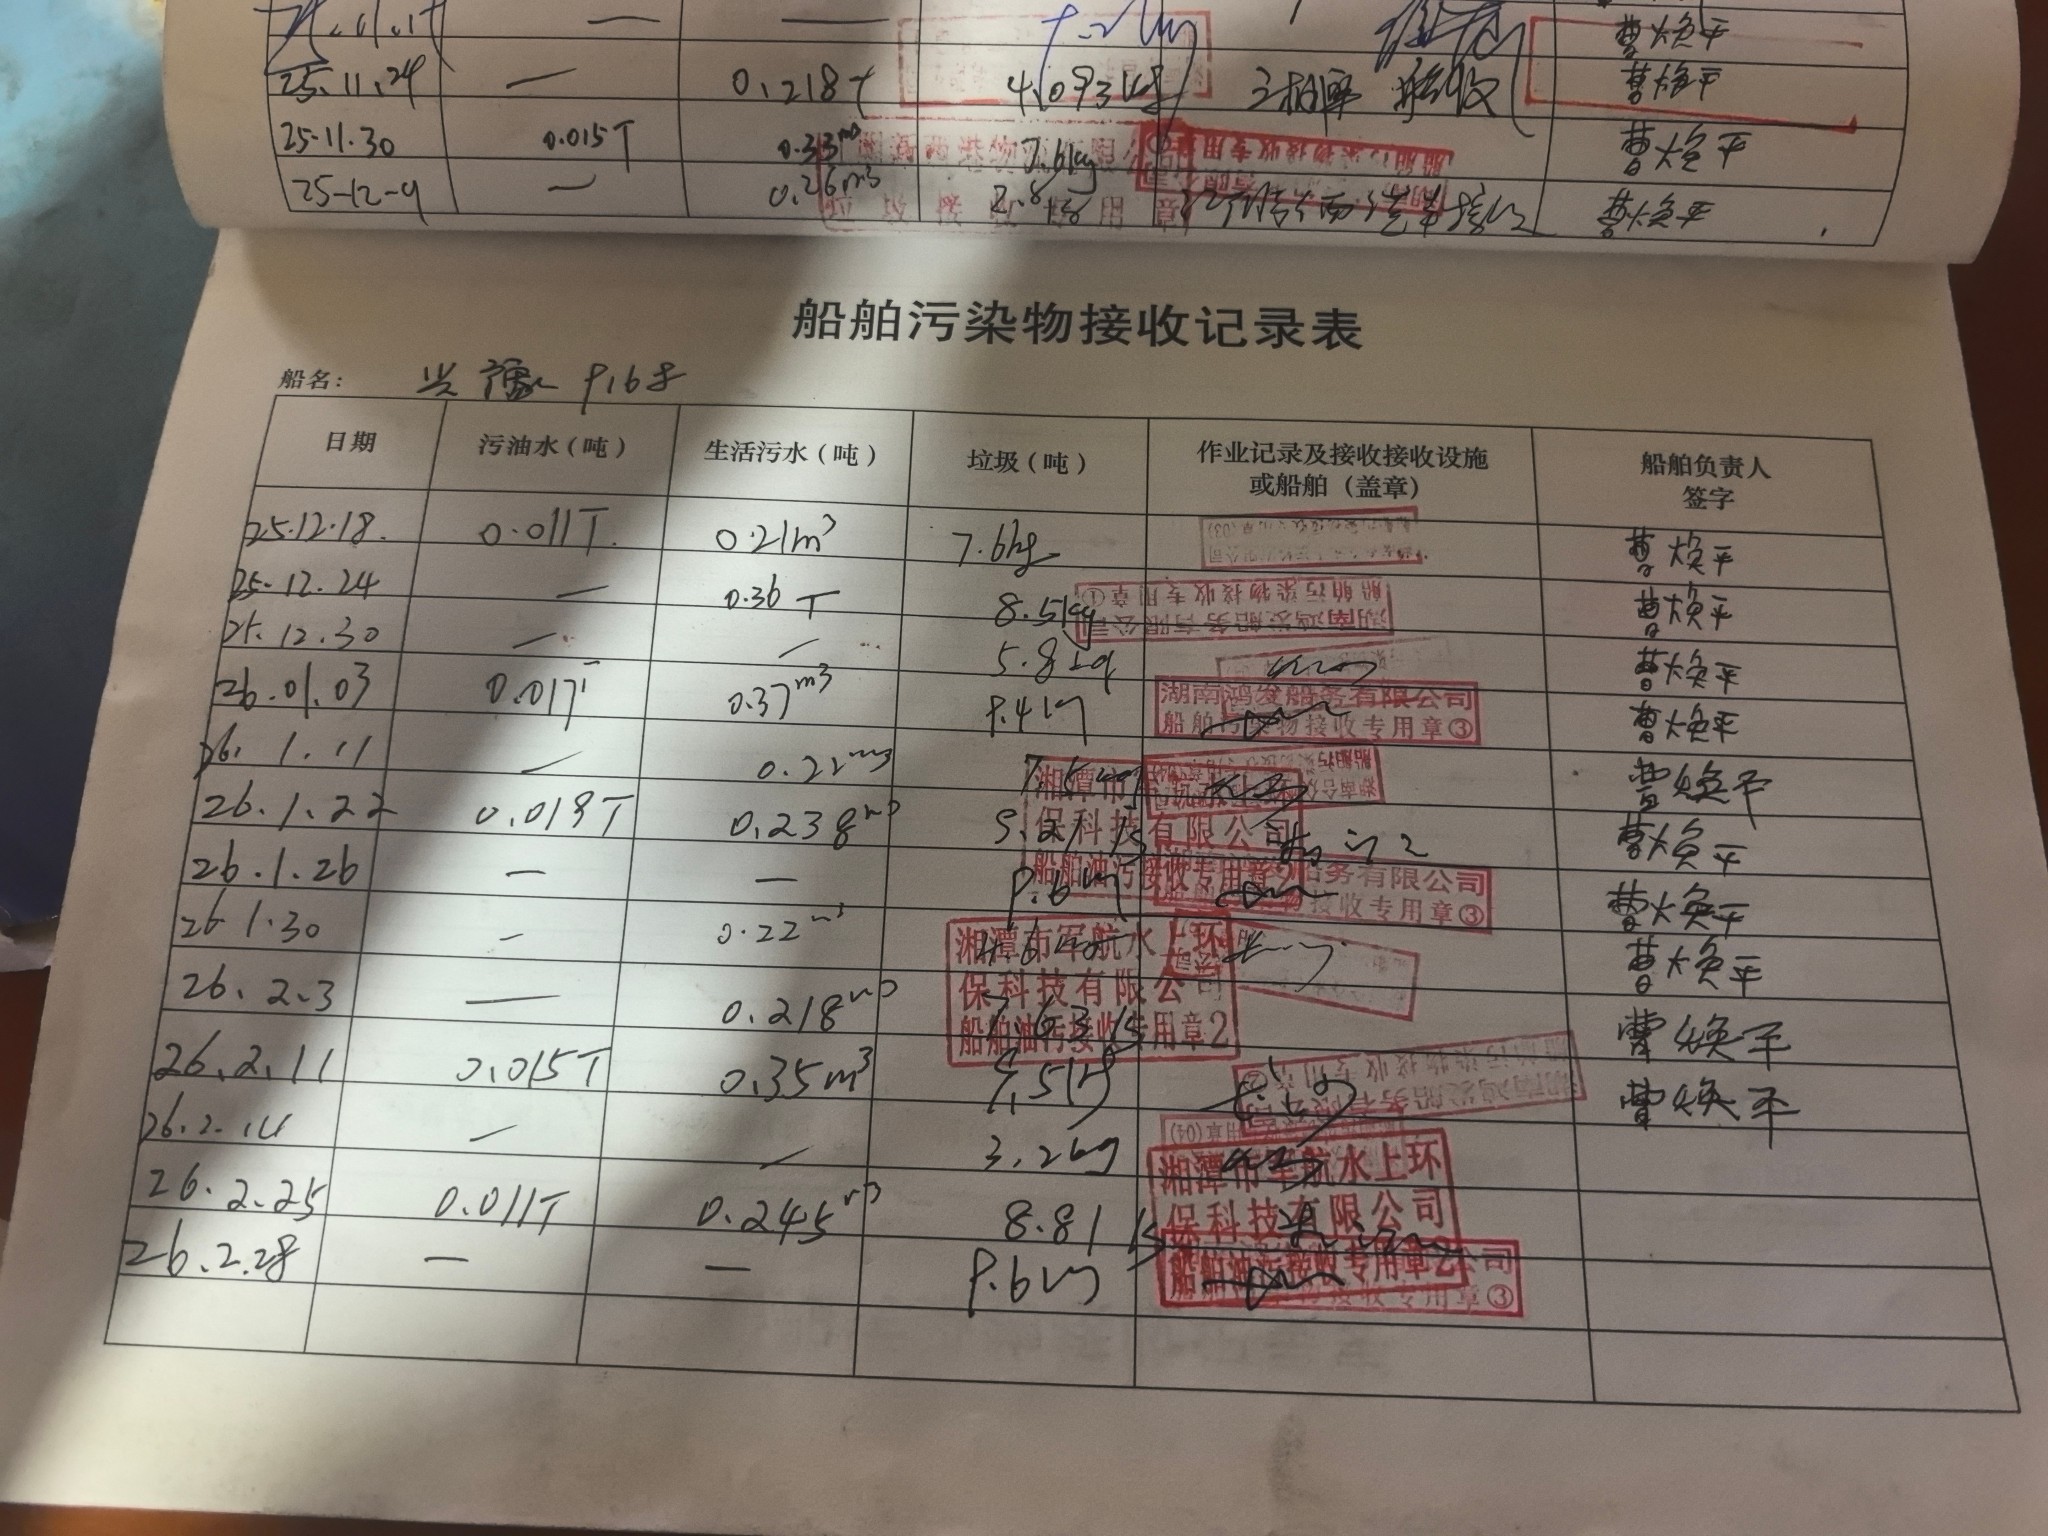 25.11.24 — 0.218T 4.093kg 接收 曹焕平
25.11.30 0.015T 0.33m³ 7.6kg 曹焕平
25-12-9 — 0.26m³ 2.8kg 曹焕平
船舶污染物接收记录表
船名:
日期 污油水(吨) 生活污水(吨) 垃圾(吨) 作业记录及接收接收设施 船舶负责人
或船舶(盖章) 签字
25.12.18. 0.011T. 0.21m³ 7.6kg 曹焕平
25.12.24 — 0.36T 8.5kg 湖南鸿发船务有限公司 船舶污染物接收专用章① 曹焕平
25.12.30 — — 5.8kg 曹焕平
26.01.03 0.017T 0.37m³ 9.4kg 湖南鸿发船务有限公司 船舶污染物接收专用章③ 曹焕平
26.1.11 — 0.22m³ 曹焕平
26.1.22 0.018T 0.238m³ 湘潭市 保科技有限公司 船舶油污接收专用章 曹焕平
26.1.26 — — 9.6kg 船务有限公司 物接收专用章③ 曹焕平
26.1.30 — 0.22m³ 曹焕平
26.2.3 — 0.218m³ 7.63 湘潭市军航水上环 保科技有限公司 船舶油污接收专用章2 曹焕平
26.2.11 0.015T 0.35m³ 9.5kg 湖南鸿发船务有限公司 船舶污染物接收专用章 曹焕平
26.2.14 — — 3.2kg
26.2.25 0.011T 0.245m³ 8.81 湘潭市军航水上环 保科技有限公司 船舶油污接收专用章2
26.2.28 — — 9.6kg 公司 物接收专用章③